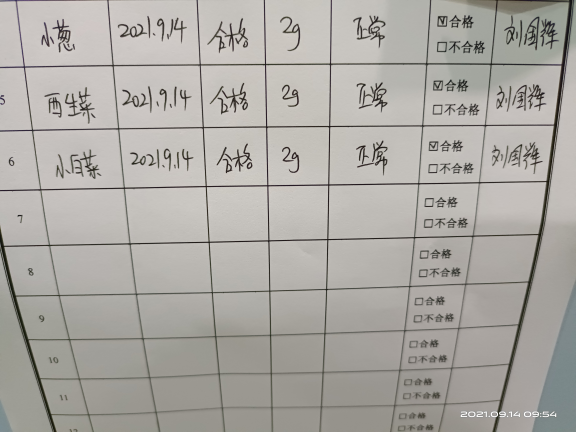 小葱 2021.9.14 合格 2g 正常 ☑合格 □不合格 刘国辉
5 西生菜 2021.9.14 合格 2g 正常 ☑合格 □不合格 刘国辉
6 小白菜 2021.9.14 合格 2g 正常 ☑合格 □不合格 刘国辉
7 □合格 □不合格
8 □合格 □不合格
9 □合格 □不合格
10 □合格 □不合格
11 □合格 □不合格
12 □合格 □不合格
2021.09.14 09:54